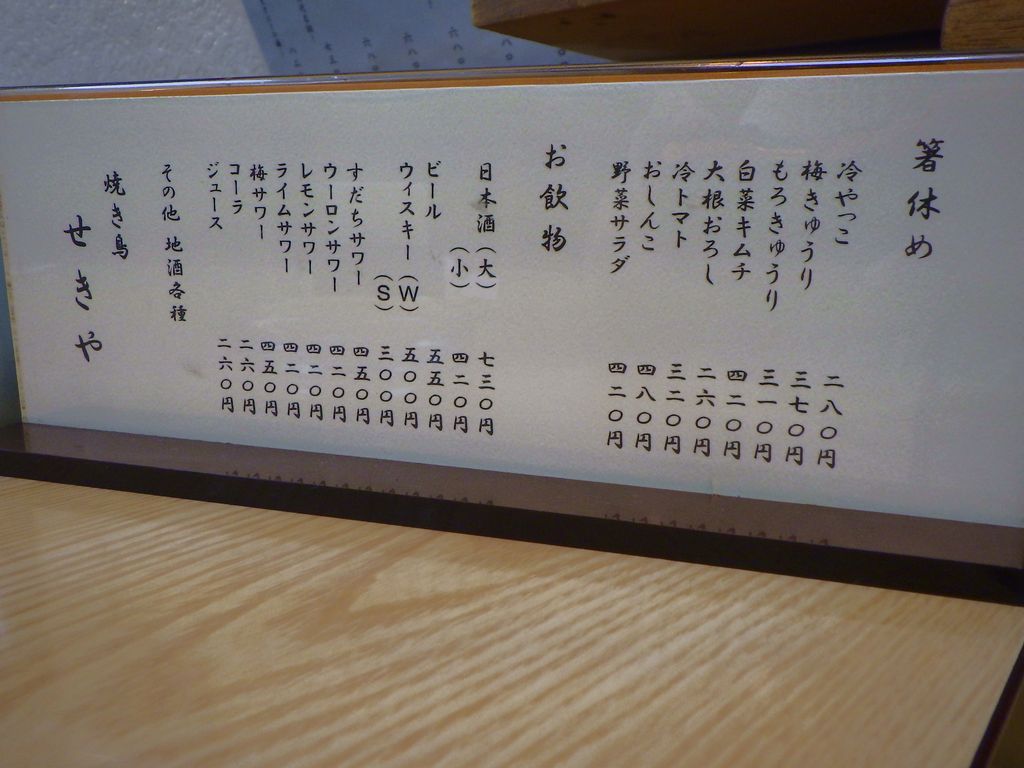 箸休め
冷やっこ 二八〇円
梅きゅうり 三七〇円
もろきゅうり 三一〇円
白菜キムチ 四二〇円
大根おろし 二六〇円
冷トマト 三二〇円
おしんこ 四八〇円
野菜サラダ 四二〇円
お飲物
日本酒（大） 七三〇円
（小） 四二〇円
ビール 五五〇円
ウィスキー（W） 五〇〇円
（S） 三〇〇円
すだちサワー 四五〇円
ウーロンサワー 四二〇円
レモンサワー 四二〇円
ライムサワー 四二〇円
梅サワー 四五〇円
コーラ 二六〇円
ジュース 二六〇円
その他 地酒各種
焼き鳥
せきや